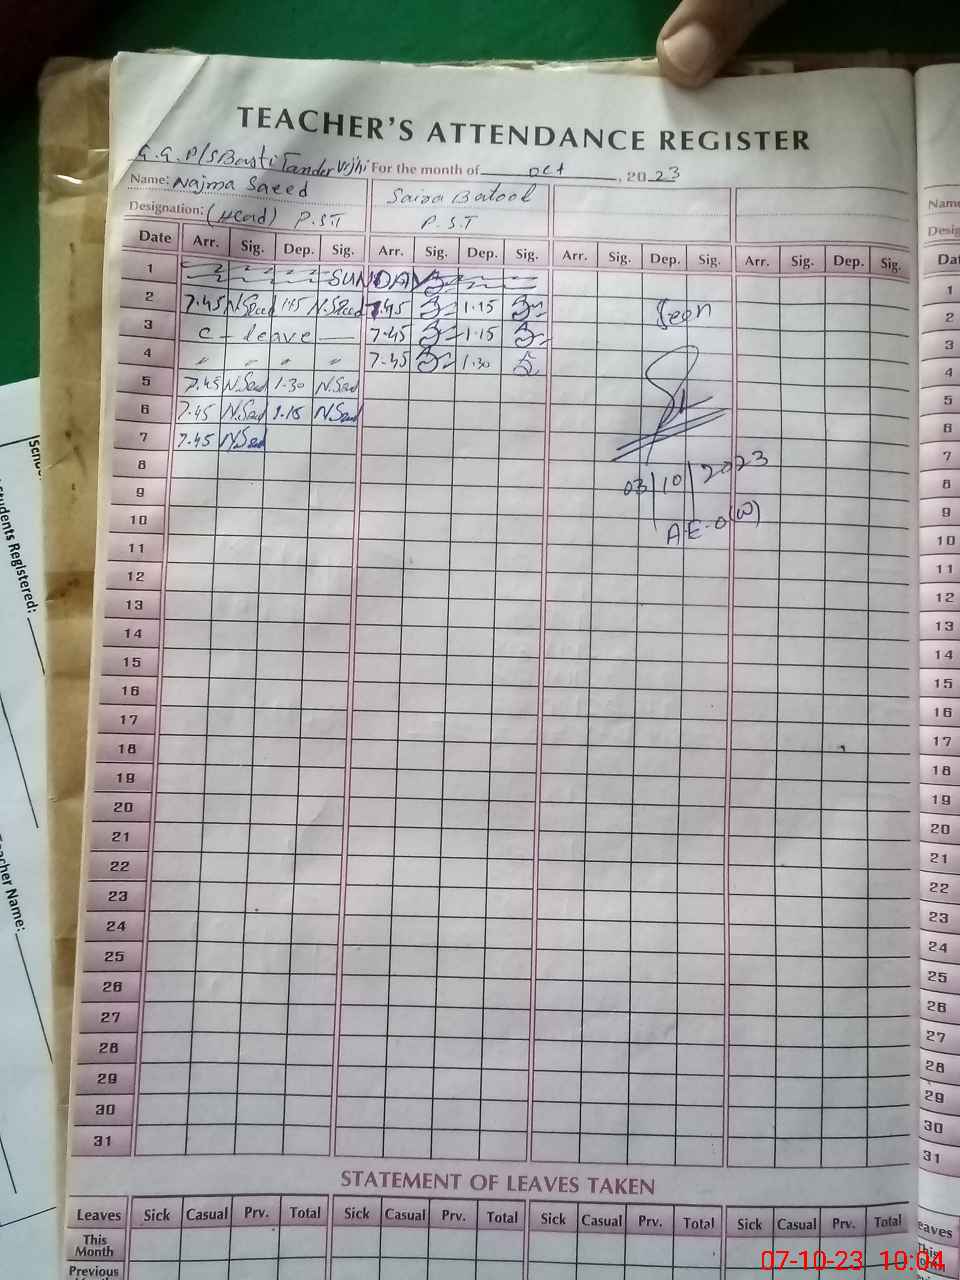 TEACHER'S ATTENDANCE REGISTER
G.G.P/S Basti Tander Vrjhi For the month of Oct, 2023
Name: Najma Saeed Saira Batool Name
Designation: (Head) P.S.T P.S.T Desig
Date Arr. Sig. Dep. Sig. Arr. Sig. Dep. Sig. Arr. Sig. Dep. Sig. Arr. Sig. Dep. Sig. Dat
1 SUNDAY 1
2 7.45 N.Seed 1.15 N.Seed 7.45 1.15 Seen 2
3 C - leave — 7.45 1.15 3
4 " " " " 7.45 1.30 4
5 7.45 N.Sed 1.30 N.Sed 5
6 7.45 N.Sed 1.15 N.Sed 6
7 7.45 N.Sed 7
8 03/10/2023 8
9 9
10 A.E.O(W) 10
11 11
12 12
13 13
14 14
15 15
16 16
17 17
18 18
19 19
20 20
21 21
22 22
23 23
24 24
25 25
26 26
27 27
28 28
29 29
30 30
31 31
STATEMENT OF LEAVES TAKEN
Leaves Sick Casual Prv. Total Sick Casual Prv. Total Sick Casual Prv. Total Sick Casual Prv. Total eaves
This Month
Previous
Students Registered:
Teacher Name:
07-10-23 10:04